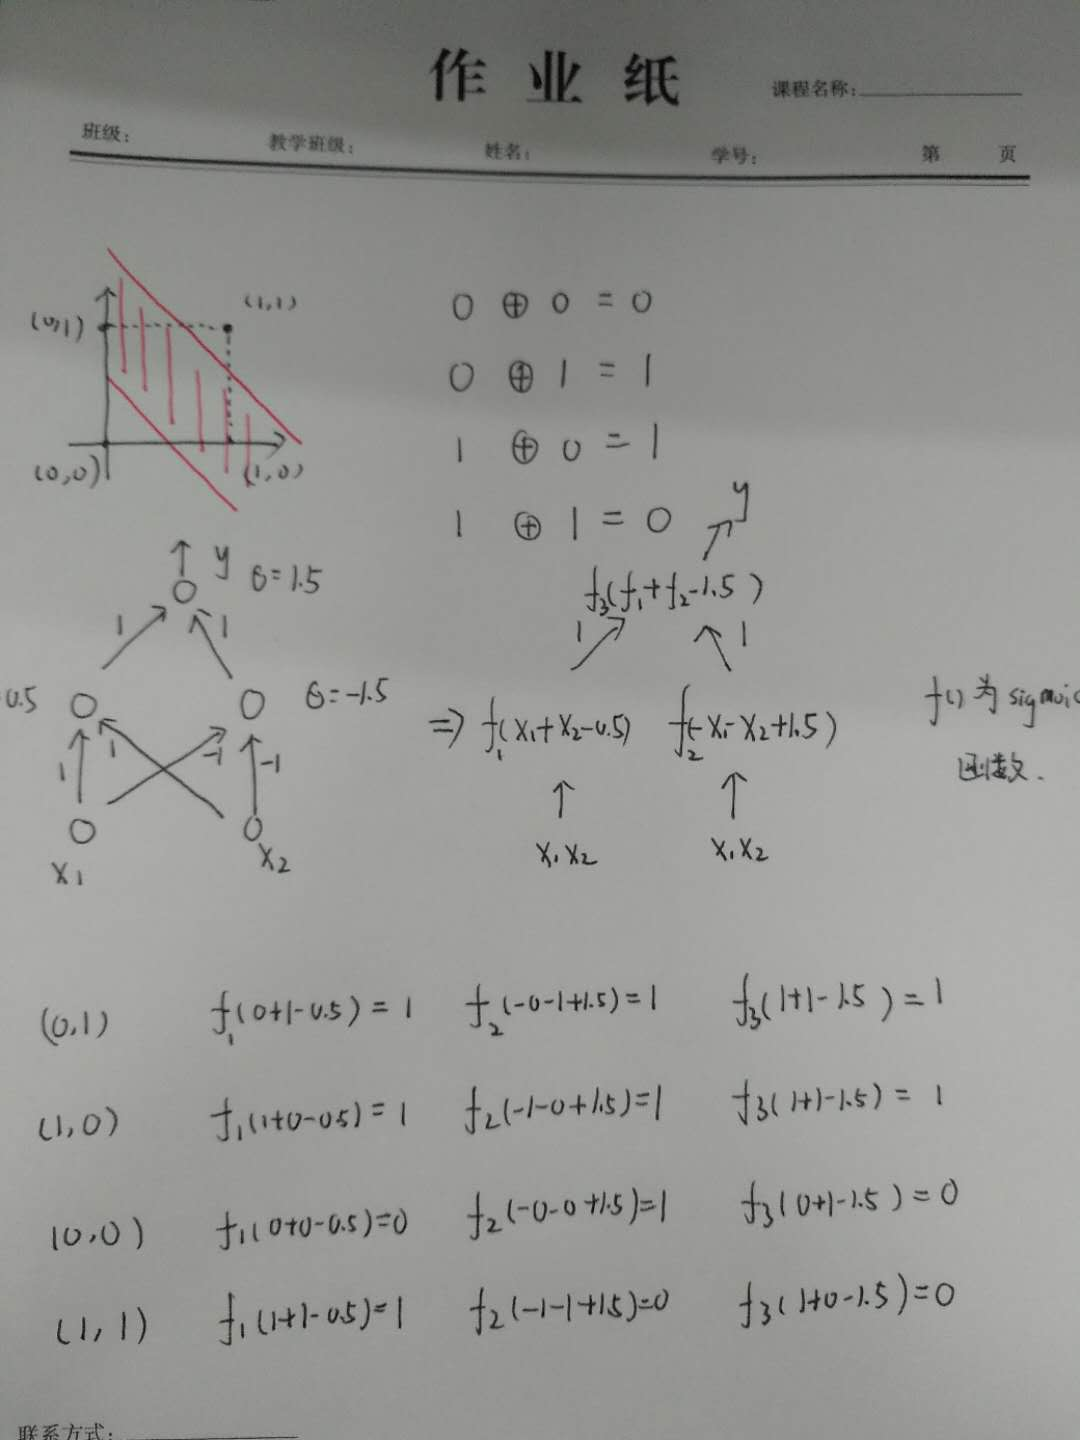 作业纸
课程名称:
班级: 教学班级: 姓名: 学号: 第 页
(0,1) (1,1)
(0,0) (1,0)
0 ⊕ 0 = 0
0 ⊕ 1 = 1
1 ⊕ 0 = 1
1 ⊕ 1 = 0
y θ=1.5
1 1
0.5 θ=-1.5
1 1 -1 -1
x1 x2
y
f3(f1+f2-1.5)
1 1
⇒ f1(x1+x2-0.5) f2(-x1-x2+1.5)
x1 x2 x1 x2
f() 为
函数.
(0,1) f1(0+1-0.5)=1 f2(-0-1+1.5)=1 f3(1+1-1.5)=1
(1,0) f1(1+0-0.5)=1 f2(-1-0+1.5)=1 f3(1+1-1.5)=1
(0,0) f1(0+0-0.5)=0 f2(-0-0+1.5)=1 f3(0+1-1.5)=0
(1,1) f1(1+1-0.5)=1 f2(-1-1+1.5)=0 f3(1+0-1.5)=0
联系方式: